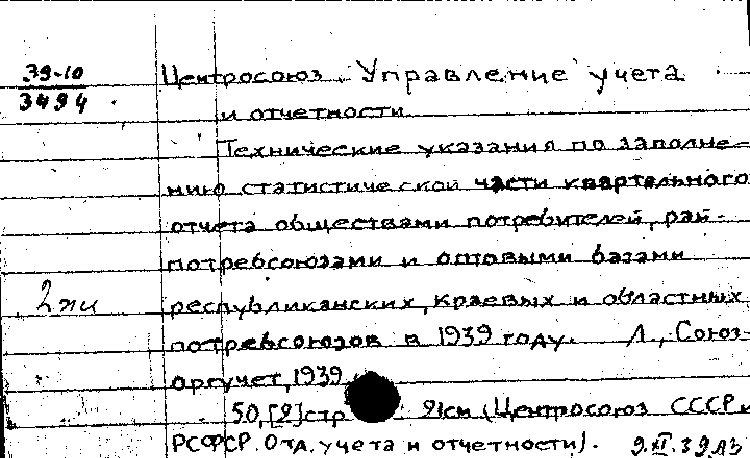 39-10
3494
Центросоюз. Управление учета
и отчетности
Технические указания по заполне-
нию статистической части квартального
отчета обществами потребителей, рай-
потребсоюзами и оптовыми базами
2 экз
республиканских, краевых и областных
потребсоюзов в 1939 году. Л., Союз-
оргучет, 1939
50, [2] стр 21см (Центросоюз СССР и
РСФСР. Отд. учета и отчетности).